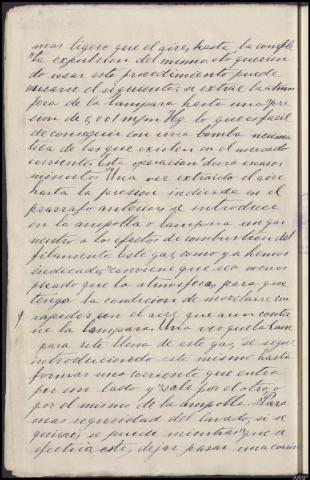 mas ligero que el aire, hasta la comple
ta expulsion del mismo. No querien
do usar este procedimiento puede
usarse el siguiente: se extrae la atmos
fera de la lampara hasta una pre
sion de 0,001 m/m Hg. lo que es facil
de conseguir con una bomba neuma
tica de las que existen en el mercado
corriente. Esta operacion dura escasos
minutos. Una vez extraido el aire
hasta la presion indicada en el
parrafo anterior, se introduce
en la ampolla o lampara un gas
neutro a los efectos de combustion del
filamento. Este gas, como ya hemos
indicado, conviene que sea menos
pesado que la atmosfera, para que
tenga la condicion de mezclarse con
rapidez con el aire que aun contie
ne la lampara. Una vez que la lam
para este llena de este gas, se sigue
introduciendo este mismo hasta
formar una corriente que entra
por un lado y sale por el otro, o
por el mismo de la ampolla. Para
mas seguridad del lavado, si se
quiere, se puede mientras que se
efectua este, dejar pasar una corrien